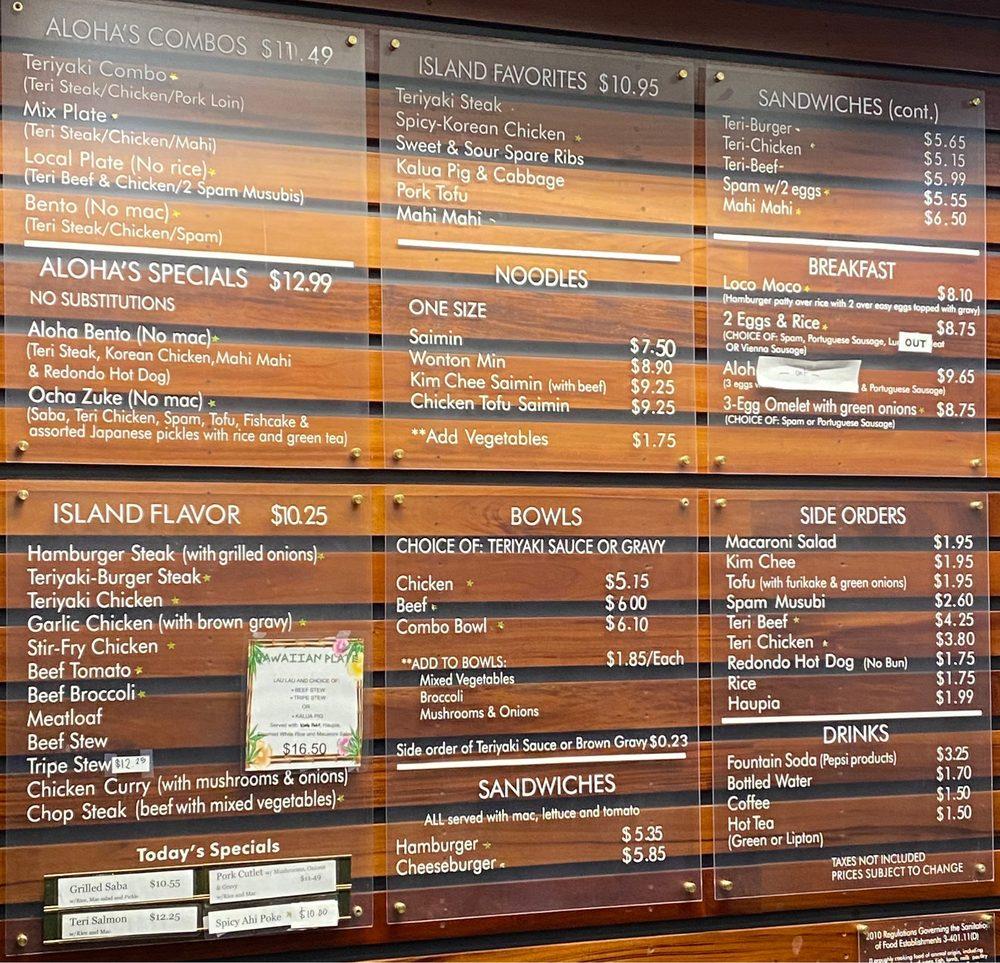 ALOHA'S COMBOS $11.49
Teriyaki Combo
(Teri Steak/Chicken/Pork Loin)
Mix Plate
(Teri Steak/Chicken/Mahi)
Local Plate (No rice)
(Teri Beef & Chicken/2 Spam Musubis)
Bento (No mac)
(Teri Steak/Chicken/Spam)
ALOHA'S SPECIALS $12.99
NO SUBSTITUTIONS
Aloha Bento (No mac)
(Teri Steak, Korean Chicken, Mahi Mahi
& Redondo Hot Dog)
Ocha Zuke (No mac)
(Saba, Teri Chicken, Spam, Tofu, Fishcake &
assorted Japanese pickles with rice and green tea)
ISLAND FAVORITES $10.95
Teriyaki Steak
Spicy-Korean Chicken
Sweet & Sour Spare Ribs
Kalua Pig & Cabbage
Pork Tofu
Mahi Mahi
NOODLES
ONE SIZE
Saimin $7.50
Wonton Min $8.90
Kim Chee Saimin (with beef) $9.25
Chicken Tofu Saimin $9.25
**Add Vegetables $1.75
SANDWICHES (cont.)
Teri-Burger $5.65
Teri-Chicken $5.15
Teri-Beef $5.99
Spam w/2 eggs $5.55
Mahi Mahi $6.50
BREAKFAST
Loco Moco $8.10
(Hamburger patty over rice with 2 over easy eggs topped with gravy)
2 Eggs & Rice $8.75
(CHOICE OF: Spam, Portuguese Sausage, Lu OUT eat
OR Vienna Sausage)
Aloh $9.65
(3 eggs & Portuguese Sausage)
3-Egg Omelet with green onions $8.75
(CHOICE OF: Spam or Portuguese Sausage)
ISLAND FLAVOR $10.25
Hamburger Steak (with grilled onions)
Teriyaki-Burger Steak
Teriyaki Chicken
Garlic Chicken (with brown gravy)
Stir-Fry Chicken
Beef Tomato
Beef Broccoli
Meatloaf
Beef Stew
Tripe Stew $12.29
Chicken Curry (with mushrooms & onions)
Chop Steak (beef with mixed vegetables)
AWAIIAN PLATE
LAU LAU AND CHOICE OF:
• BEEF STEW
• TRIPE STEW
OR
• KALUA PIG
Served with Haupia,
White Rice and Macaroni Salad
$16.50
Today's Specials
Grilled Saba $10.55
w/Rice, Mac salad and Pickle
Teri Salmon $12.25
w/Rice and Mac
Pork Cutlet w/ Mushrooms, Onions
& Gravy $11.49
w/Rice and Mac
Spicy Ahi Poke $10.50
BOWLS
CHOICE OF: TERIYAKI SAUCE OR GRAVY
Chicken $5.15
Beef $6.00
Combo Bowl $6.10
**ADD TO BOWLS: $1.85/Each
Mixed Vegetables
Broccoli
Mushrooms & Onions
Side order of Teriyaki Sauce or Brown Gravy $0.23
SANDWICHES
ALL served with mac, lettuce and tomato
Hamburger $5.35
Cheeseburger $5.85
SIDE ORDERS
Macaroni Salad $1.95
Kim Chee $1.95
Tofu (with furikake & green onions) $1.95
Spam Musubi $2.60
Teri Beef $4.25
Teri Chicken $3.80
Redondo Hot Dog (No Bun) $1.75
Rice $1.75
Haupia $1.99
DRINKS
Fountain Soda (Pepsi products) $3.25
Bottled Water $1.70
Coffee $1.50
Hot Tea $1.50
(Green or Lipton)
TAXES NOT INCLUDED
PRICES SUBJECT TO CHANGE
2010 Regulations Governing the Sanitatio
of Food Establishments 3-401.11(D)